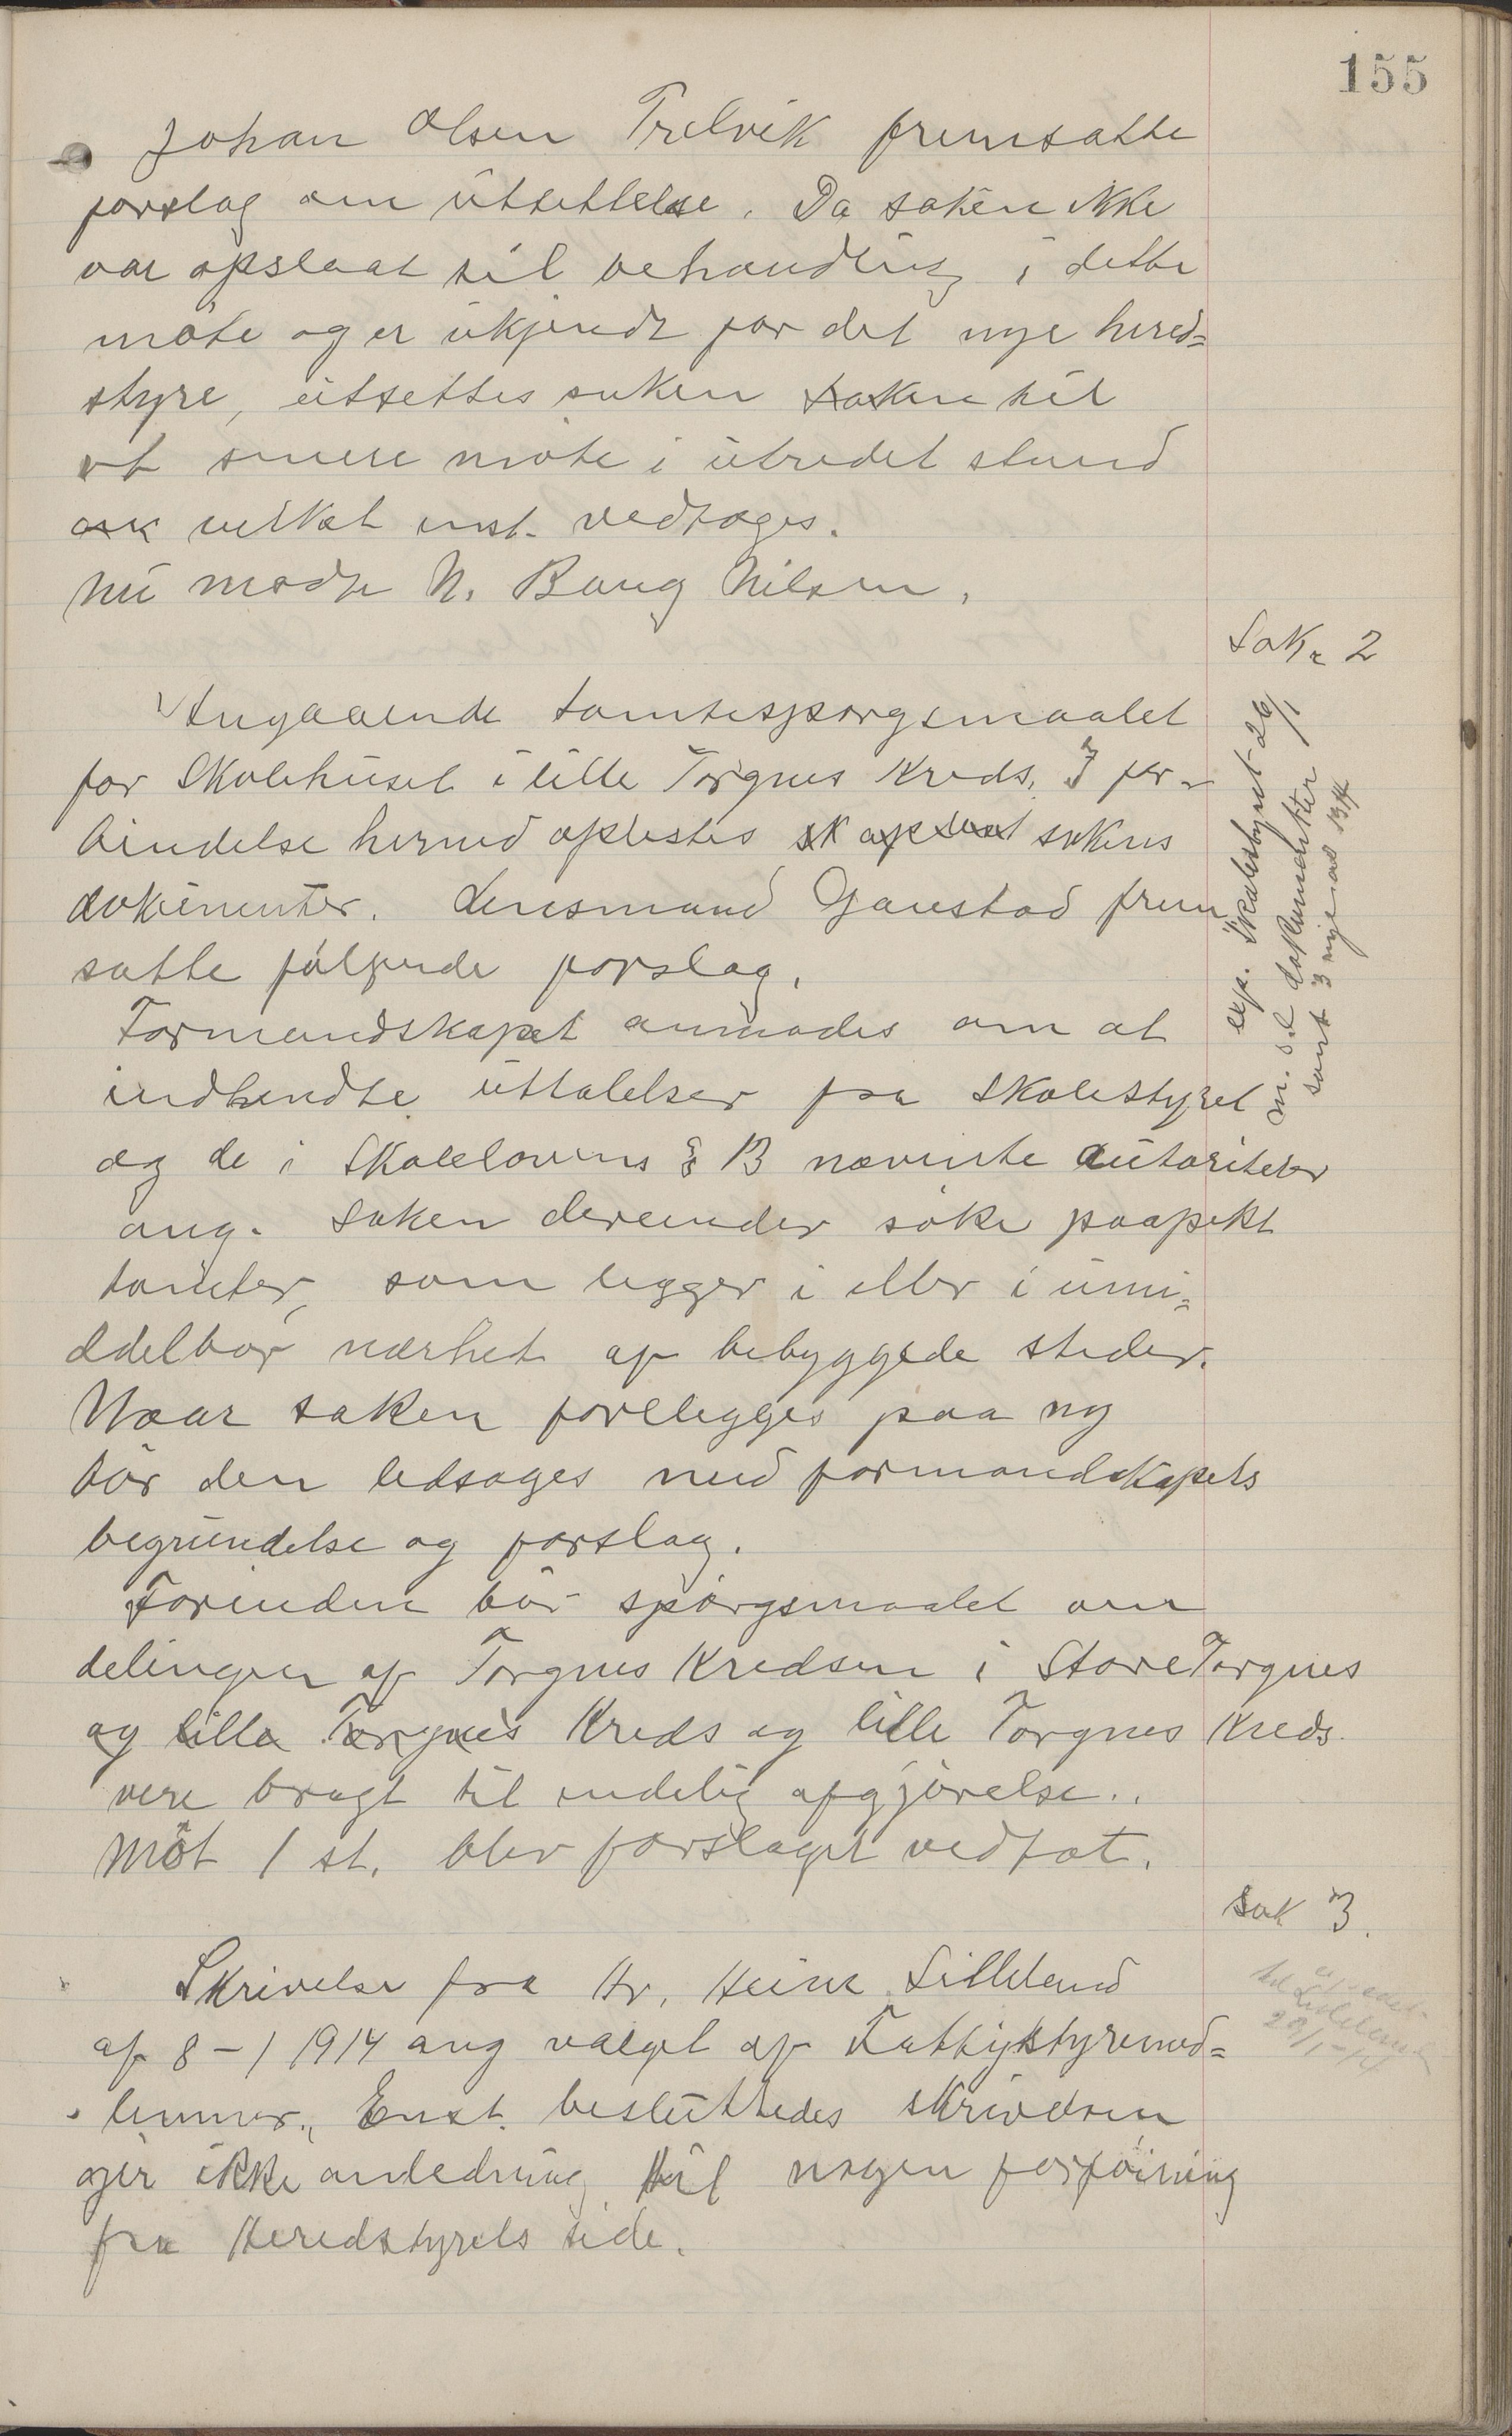 155
Johan Olsen Trelvik fremsatte
forslag om utsettelse. Da saken ikke
var opslaat til behandling i dette
möte og er ukjendt for det nye hered-
styre, utsettes saken saken til
et senere möte i utredet stand
vilket enst. vedtoges.
Nu mødte N. Bang Nilsen.
Sak 2
Angaaende tomtespørgsmaalet
for Skolehuset i lille Torgnes Kreds. I for-
bindelse hermed oplestes sakens
dokumenter. Lensmand Gaustad frem
satte fölgende forslag.
Formandskapet anmodes om at
indhendte uttalelser fra Skolestyret
og de i Skolelovens § 13 nævnte autoriteter
ang. saken derunder søke paapekt
tomter, som ligger i eller i umi-
ddelbar nærhet af bebyggede steder.
Naar saken forelegges paa ny
bör den ledsages med formandskapets
begrundelse og forslag.
Forinden bör spörgsmaalet om
delingen af Torgnes Kredsen i Store Torgnes
og lille Torgnes Kreds og lille Torgnes Kreds
vere bragt til endelig afgjörelse..
Möt 1 st. blev forslaget vedtat.
exp. Skolestyret 26/1
dokumenter
samt 3 nye
Sak 3.
Skrivelse fra Hr. Heine Lilleland
af 8-1 1914 ang valget af Fattigstyremed-
lemmer. Enst. besluttedes skrivelsen
gir ikke anledning til nogen forföining
fra Heredstyrets side.
til Lilleland